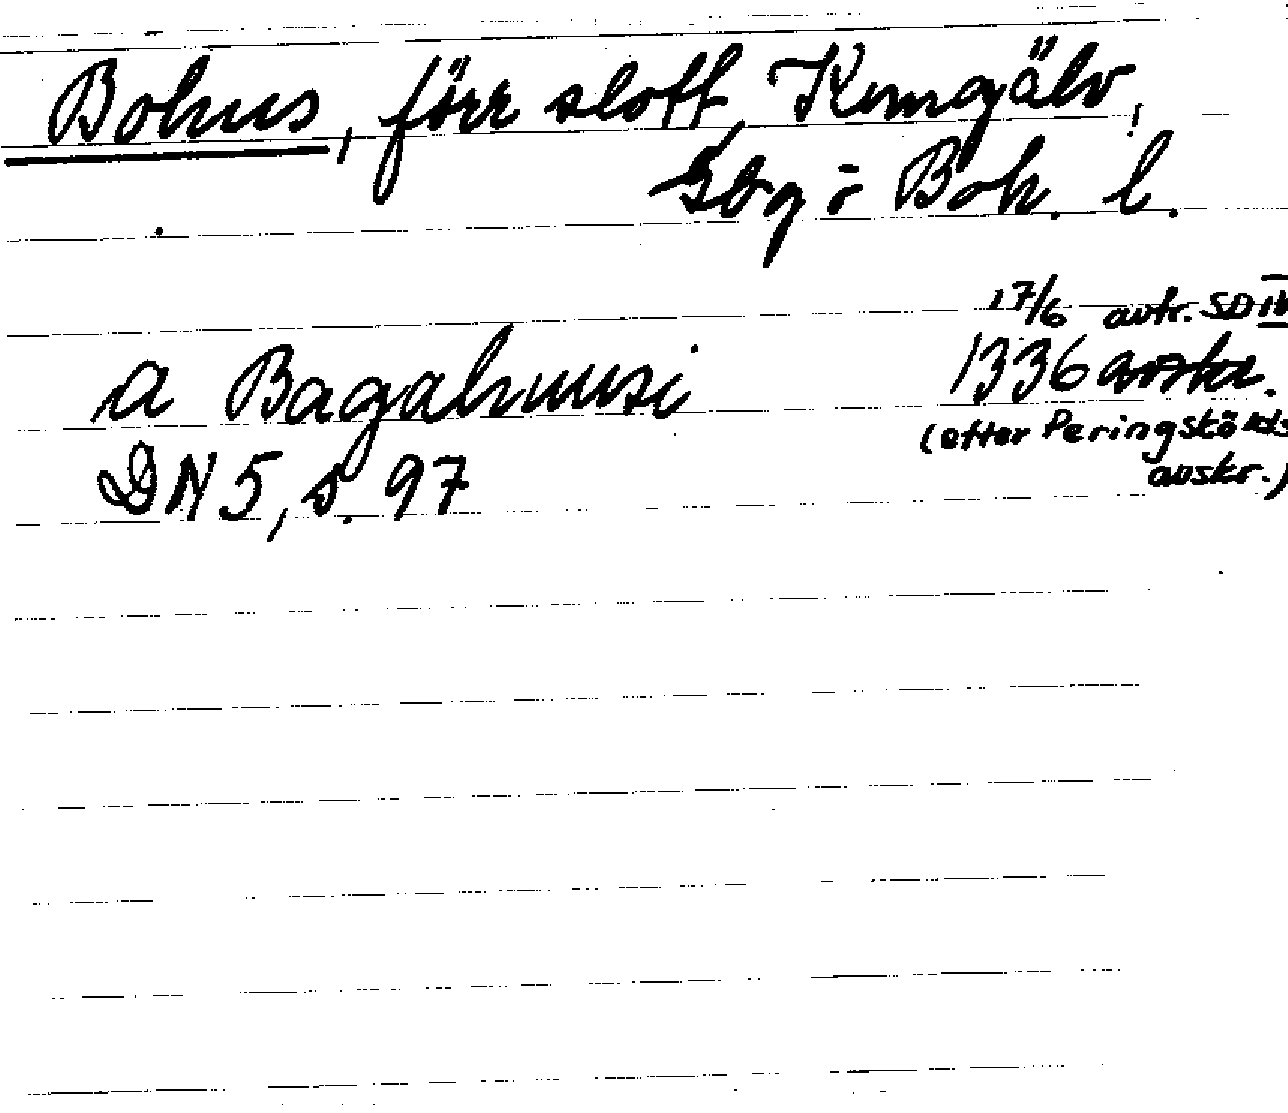 Bohus, förr slott, Kungälv,
Gbg o Boh. l.
17/6 avtr. SD
a Bagahuusi 1336 avskr.
(efter Peringskölds
DN 5, s. 97 avskr.)